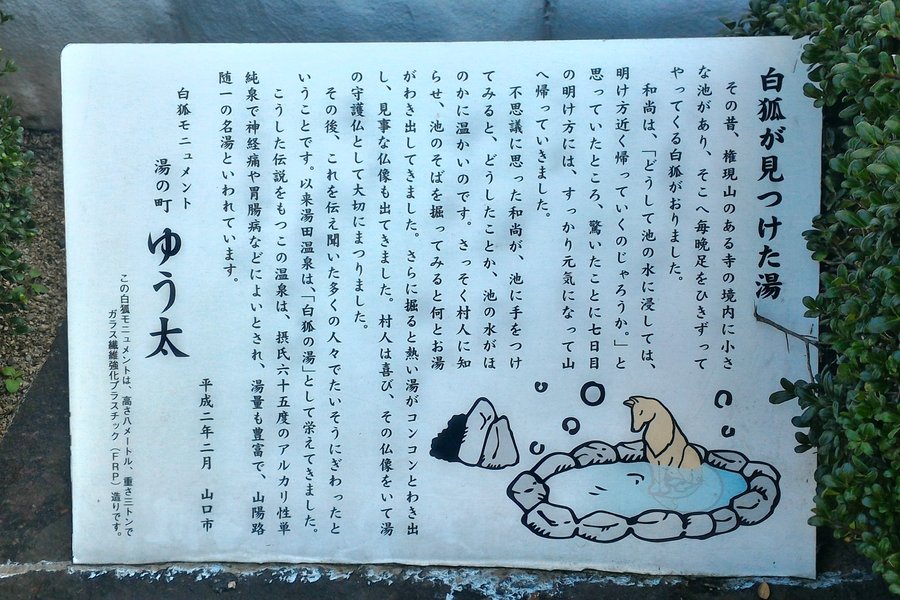 白狐が見つけた湯
その昔、権現山のある寺の境内に小さ
な池があり、そこへ毎晩足をひきずって
やってくる白狐がおりました。
和尚は、「どうして池の水に浸しては、
明け方近く帰っていくのじゃろうか。」と
思っていたところ、驚いたことに七日目
の明け方には、すっかり元気になって山
へ帰っていきました。
不思議に思った和尚が、池に手をつけ
てみると、どうしたことか、池の水がほ
のかに温かいのです。さっそく村人に知
らせ、池のそばを掘ってみると何とお湯
がわき出してきました。さらに掘ると熱い湯がコンコンとわき出
し、見事な仏像も出てきました。村人は喜び、その仏像をいで湯
の守護仏として大切にまつりました。
その後、これを伝え聞いた多くの人々でたいそうにぎわったと
いうことです。以来湯田温泉は、「白狐の湯」として栄えてきました。
こうした伝説をもつこの温泉は、摂氏六十五度のアルカリ性単
純泉で神経痛や胃腸病などによいとされ、湯量も豊富で、山陽路
随一の名湯といわれています。
平成二年二月 山口市
白狐モニュメント
湯の町 ゆう太
この白狐モニュメントは、高さ八メートル、重さ三トンで
ガラス繊維強化プラスチック（FRP）造りです。